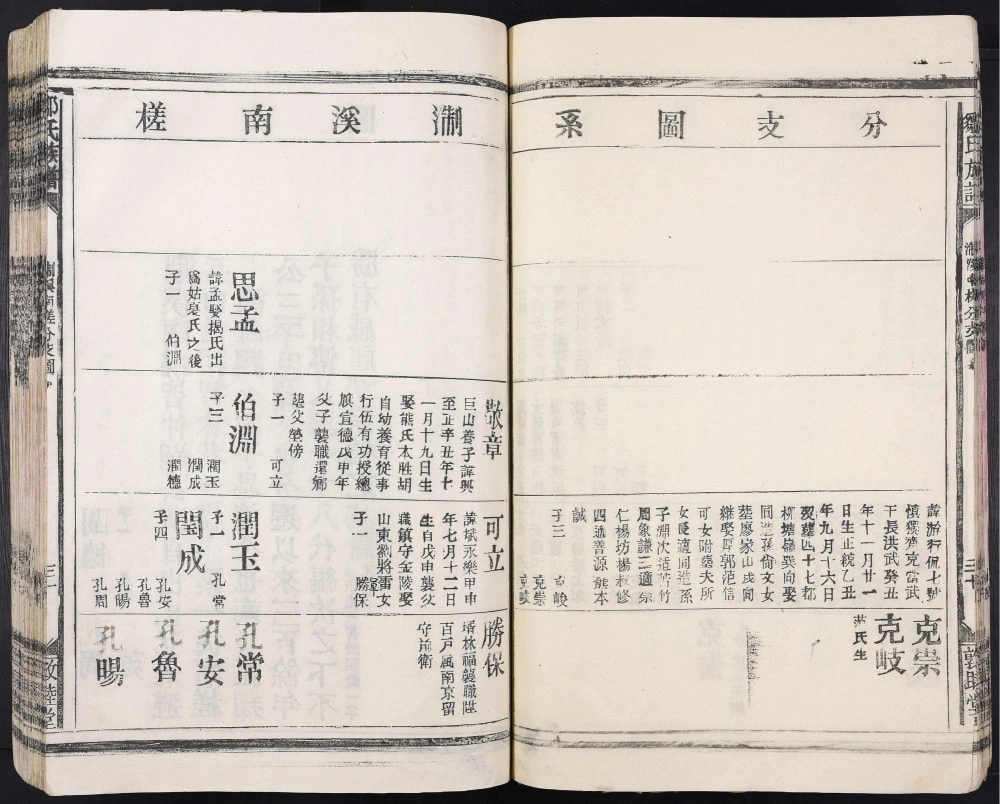 鄒氏族譜
三十
敦睦堂
分支圖系
諱游行侃七號
慎獏齊克當武
干長洪武癸丑
年十一月廿一
日生正統乙丑
年九月十六日
歿塟四十七都
柳塘
向娶
同造孫倫文女
繼娶厚郭范信
可女附塟夫所
女長適同造孫
子淵次適苦竹
周象謙三適崇
仁楊坊楊敬修
四適善源熊本
誠
子三 克峻 克崇 克岐
克崇
克岐
范氏生
淛溪南槎
敬章
巨山養子諱興
至正辛丑年七
一月十九日生
娶熊氏太胜胡
自幼養育從事
行伍有功授總
旗宣德戊申年
父子襲職還鄉
塟父塋傍
子一 可立
可立
諱斌永樂甲申
年七月十二日
生自戊申襲父
職鎮守金陵娶
山東劉將軍女
子一 勝保
勝保
壻林福襲職陞
百戶屬南京留
守前衛
思孟
諱孟娶揭氏出
爲姑袁氏之後
子一 伯淵
伯淵
子三 潤玉 潤成 潤德
潤玉
子一 孔常
閏成
子四 孔安 孔魯 孔暘 孔周
孔常
孔安
孔魯
孔暘
氏族譜
南槎分支圖
三十
敦睦堂